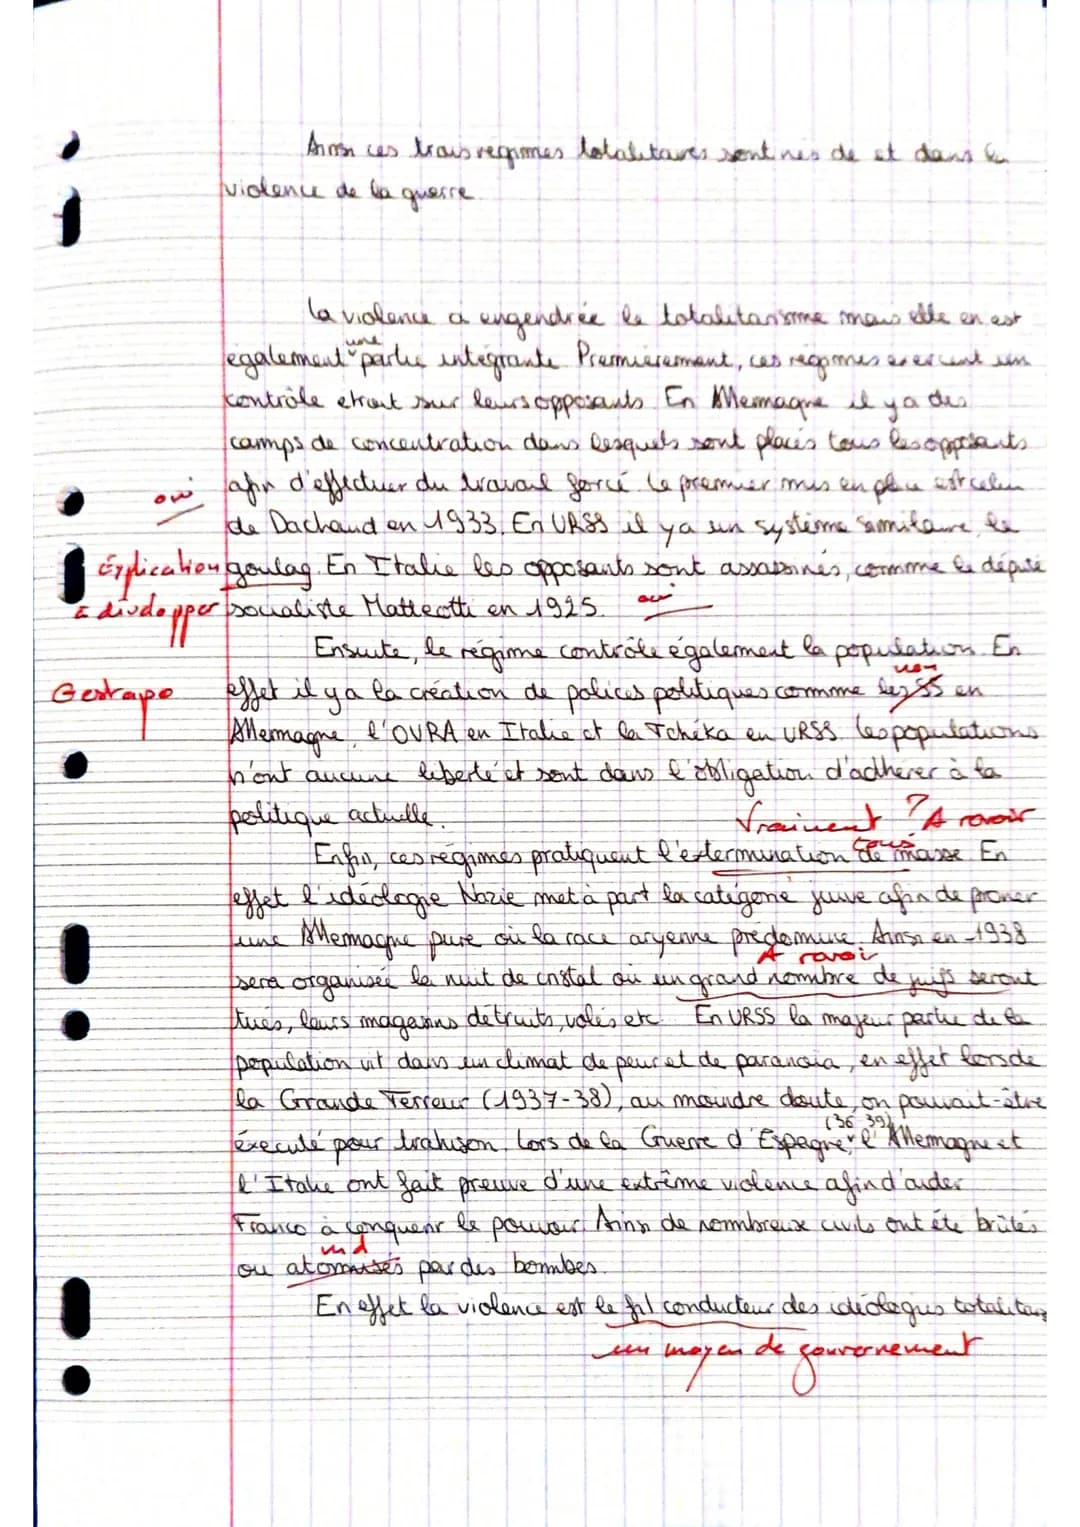 Ainsi ces trois régimes totalitaires sont nés de et dans la
violence de la guerre.
La violence a engendrée le totalitarisme mais elle en est
une
également partie intégrante. Premièrement, ces régimes exercent un
contrôle etroit sur leurs opposants. En Allemagne il y a des
camps de concentration dans lesquels sont placés tous les opposants
oui afin d'effectuer du travail forcé. Le premier mis en place est celui
de Dachaud en 1933. En URSS il y a un système similaire, le
Explication goulag. En Italie les opposants sont assassinés, comme le député
à développer socialiste Matteotti en 1925. oui
Ensuite, le régime contrôle également la population. En
non
Gestapo effet il y a la création de polices politiques comme les SS en
Allemagne, l'OVRA en Italie et la Tchéka en URSS. Les populations
n'ont aucune liberté et sont dans l'obligation d'adhérer à la
politique actuelle. Vraiment ? A revoir
tous
Enfin, ces régimes pratiquent l'extermination de masse. En
effet l'idéologie Nazie met à part la catégorie juive afin de proner
une Allemagne pure où la race aryenne prédomine. Ainsi en 1938
A revoir
sera organisée la nuit de cristal où un grand nombre de juifs seront
tués, leurs magasins détruits, volés etc. En URSS la majeur partie de la
population vit dans un climat de peur et de paranoia, en effet lors de
la Grande Terreur (1937-38), au moindre doute, on pouvait-être
(36 39)
éxecuté pour trahison. Lors de la Guerre d'Espagne, l'Allemagne et
l'Italie ont fait preuve d'une extrême violence afin d'aider
Franco à conquerir le pouvoir. Ainsi de nombreux civils ont été brûlés
md
ou atomisés par des bombes.
En effet la violence est le fil conducteur des idéologies totalitaires
un moyen de gouvernement